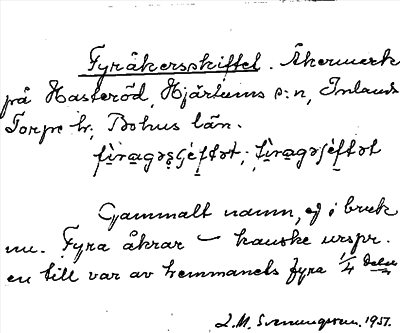 Fyråkersskiftet. Åkermark
på Hasteröd, Hjärtums s:n, Inlands
Torpe hd, Bohus län.
Gammalt namn, ej i bruk
nu. Fyra åkrar — kanske urspr.
en till var av hemmanets fyra 1/4 delar
L.M. Svenungsson. 1951.